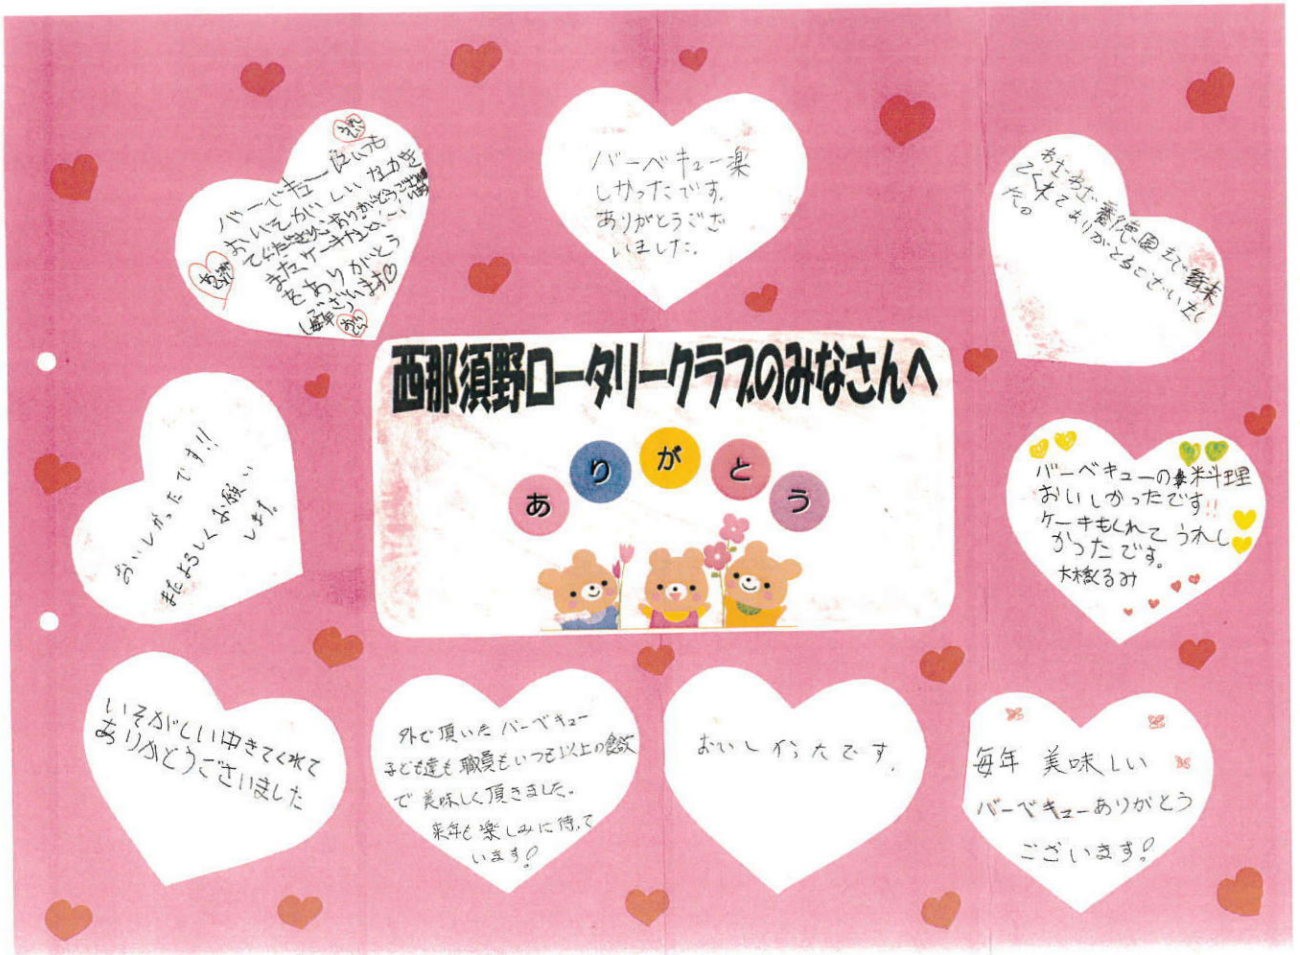 西那須野ロータリークラブのみなさんへ
ありがとう
バーベキュー
おいそがしいなかき
てくださりありがとうござ
またケーキなど
をありがとう
ございます♡
バーベキュー楽
しかったです。
ありがとうござ
いました。
わざわざ養徳園まで
てくれてありがとうございまし
た。
おいしかったです!!
またよろしくお願い
します。
バーベキューの料理
おいしかったです!!
ケーキもくれてうれし
かったです。
大橋るみ
いそがしい中きてくれて
ありがとうございました
外で頂いたバーベキュー
子ども達も職員もいつも以上の食欲
で美味しく頂きました。
来年も楽しみに待って
います!
おいしかったです。
毎年 美味しい
バーベキューありがとう
ございます!